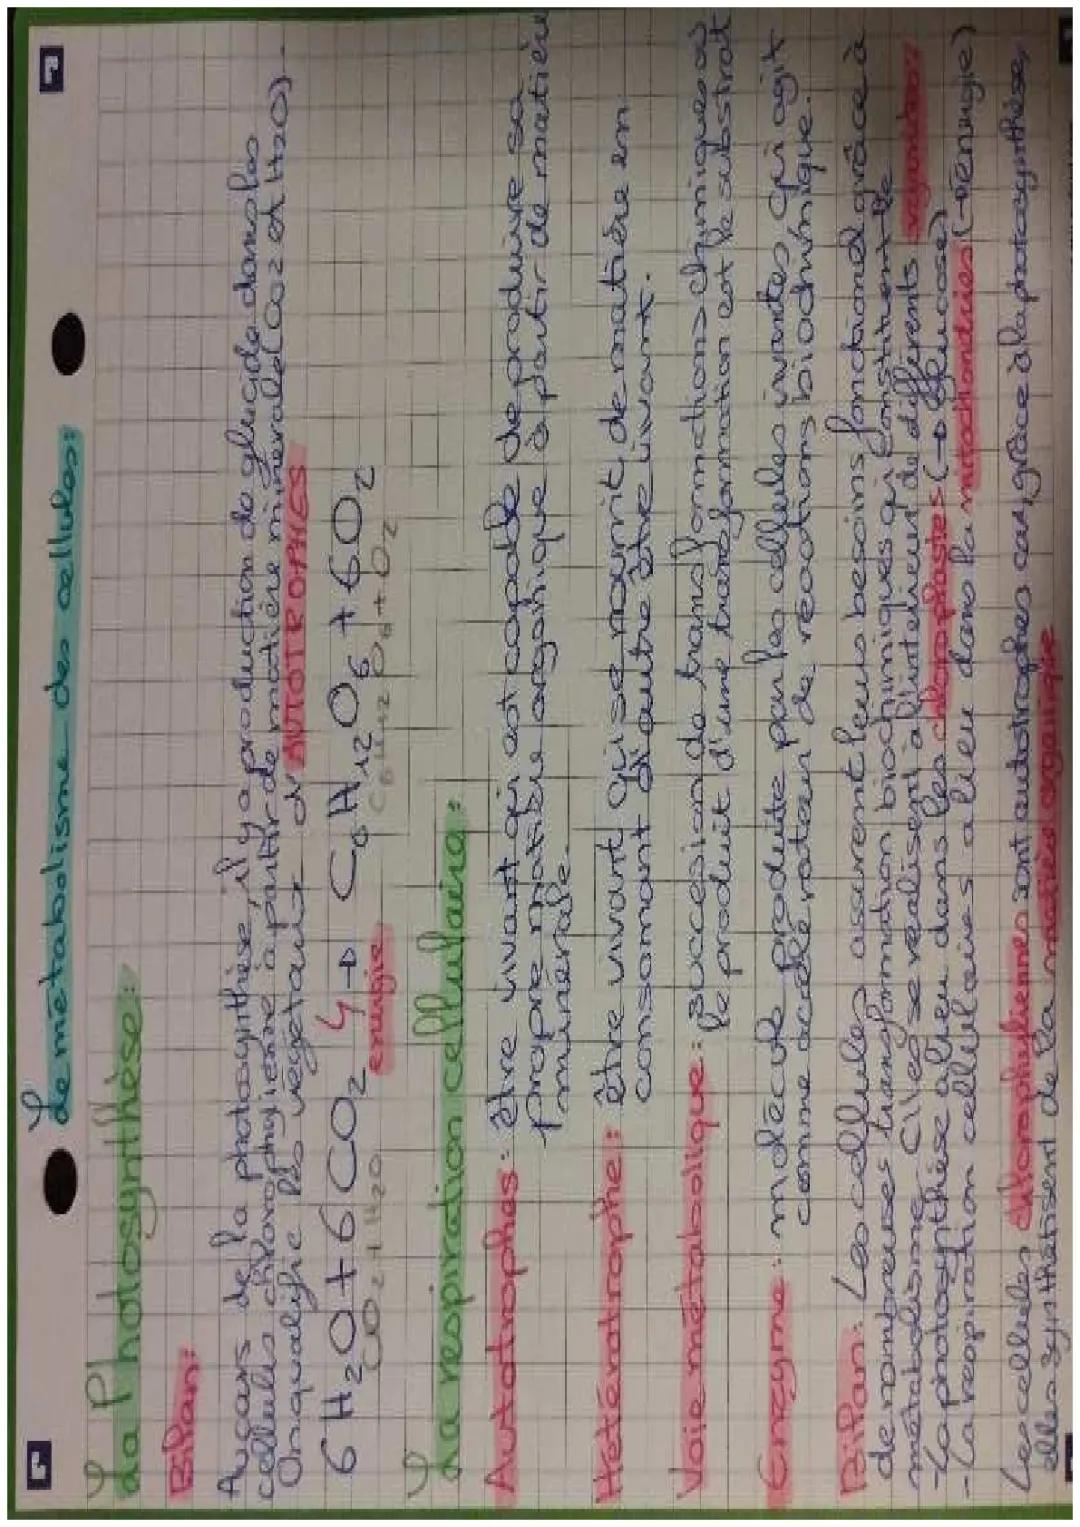 Le métabolisme des cellules:
La Photosynthèse:
Bilan:
Au cours de la photosynthèse, il y a production de glucide dans les
cellules chlorophyliene à partir de matière minérale (CO2 et H2O).
On qualifie les vegetaux d'AUTOTROPHES
6 H2O + 6 CO2 → C6H12O6 + 6O2
energie
CO2 + H2O C6H12O6 + O2
La respiration cellulaire:
Autotrophes: être vivant qui est capable de produire sa
propre matière organique à partir de matière
minérale.
Hétérotrophe: être vivant qui se nourrit de matière en
consomant d'autre être vivant.
Voie métabolique: succession de transformations chimiques où
le produit d'une transformation est le substrat
Enzyme: molécule produite par les cellules vivantes qui agit
comme accélérateur de réactions biochimique.
Bilan: Les cellules assurent leurs besoins fonctionel grâce à
de nombreuses transformation biochimiques qui constituent le
métabolisme. Elles se réalisent à l'interieur de différents organites:
- La photosynthèse a lieu dans les chloroplastes (→ glucose)
- La respiration cellulaires a lieu dans la mitochondries (→ énergie)
Les cellules chlorophyliennes sont autotrophes car, grâce à la photosynthèse,
elles synthétisent de la matière organique